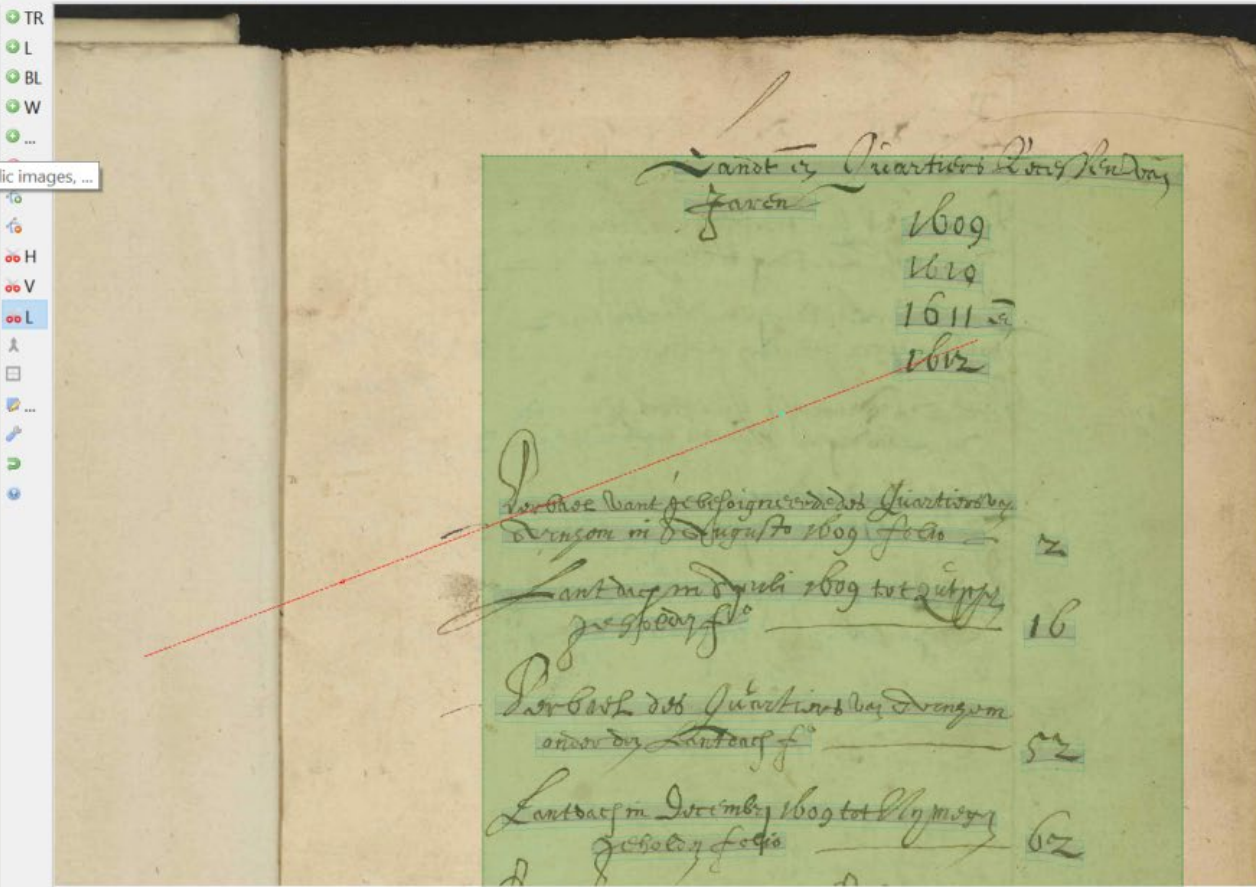 TR
L
BL
W
...
lic images, ...
H
V
L
...
Landt en Quartiers Recessen van
Jaren
1609
1610
1611 en
1612
Verbael vant gebesoigneerde des Quartiers van
in Augusto 1609 folio
2
Lantdach in Aprili 1609 tot Zutphen
geholden fo
16
Verbael des Quartiers van
onder den Lantdach fo
52
Lantdach in Decembri 1609 tot Nymegen
geholden folio
62